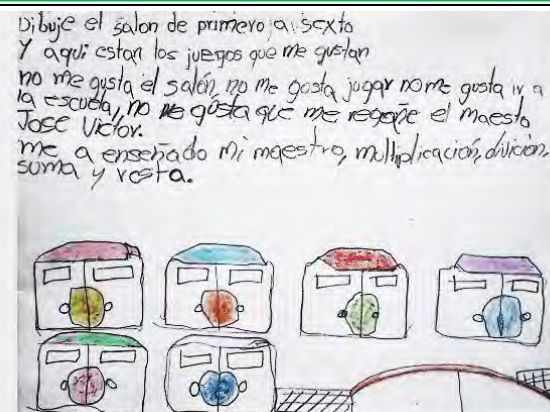 Dibuje el salon de primero a sexto
Y aqui estan los juegos que me gustan
no me gusta el salón, no me gosta jugar no me gusta ir a
la escuela, no me gusta que me regañe el maesto
José Victor.
me a enseñado mi maestro, multiplicación, división,
suma y resta.